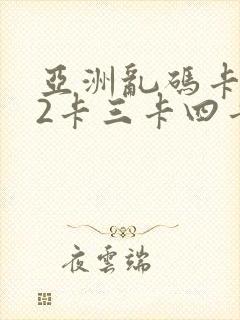 亞洲亂碼卡
2卡三卡四
夜雲端